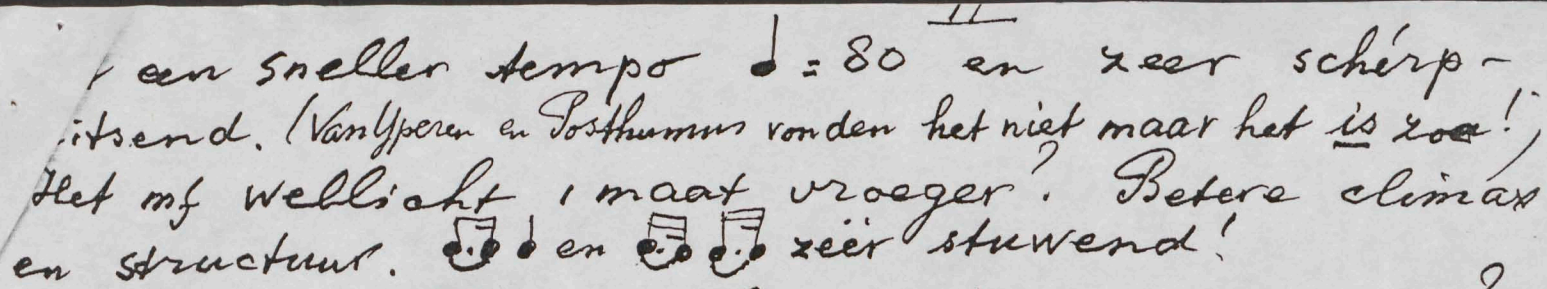 II
een sneller tempo ♩ = 80 en zeer schérp-
itsend. (Van IJperen en Posthumus vonden het niet maar het is zoo!)
Het mf wellicht 1 maat vroeger? Betere climax
en structuur. en zéér stuwend!